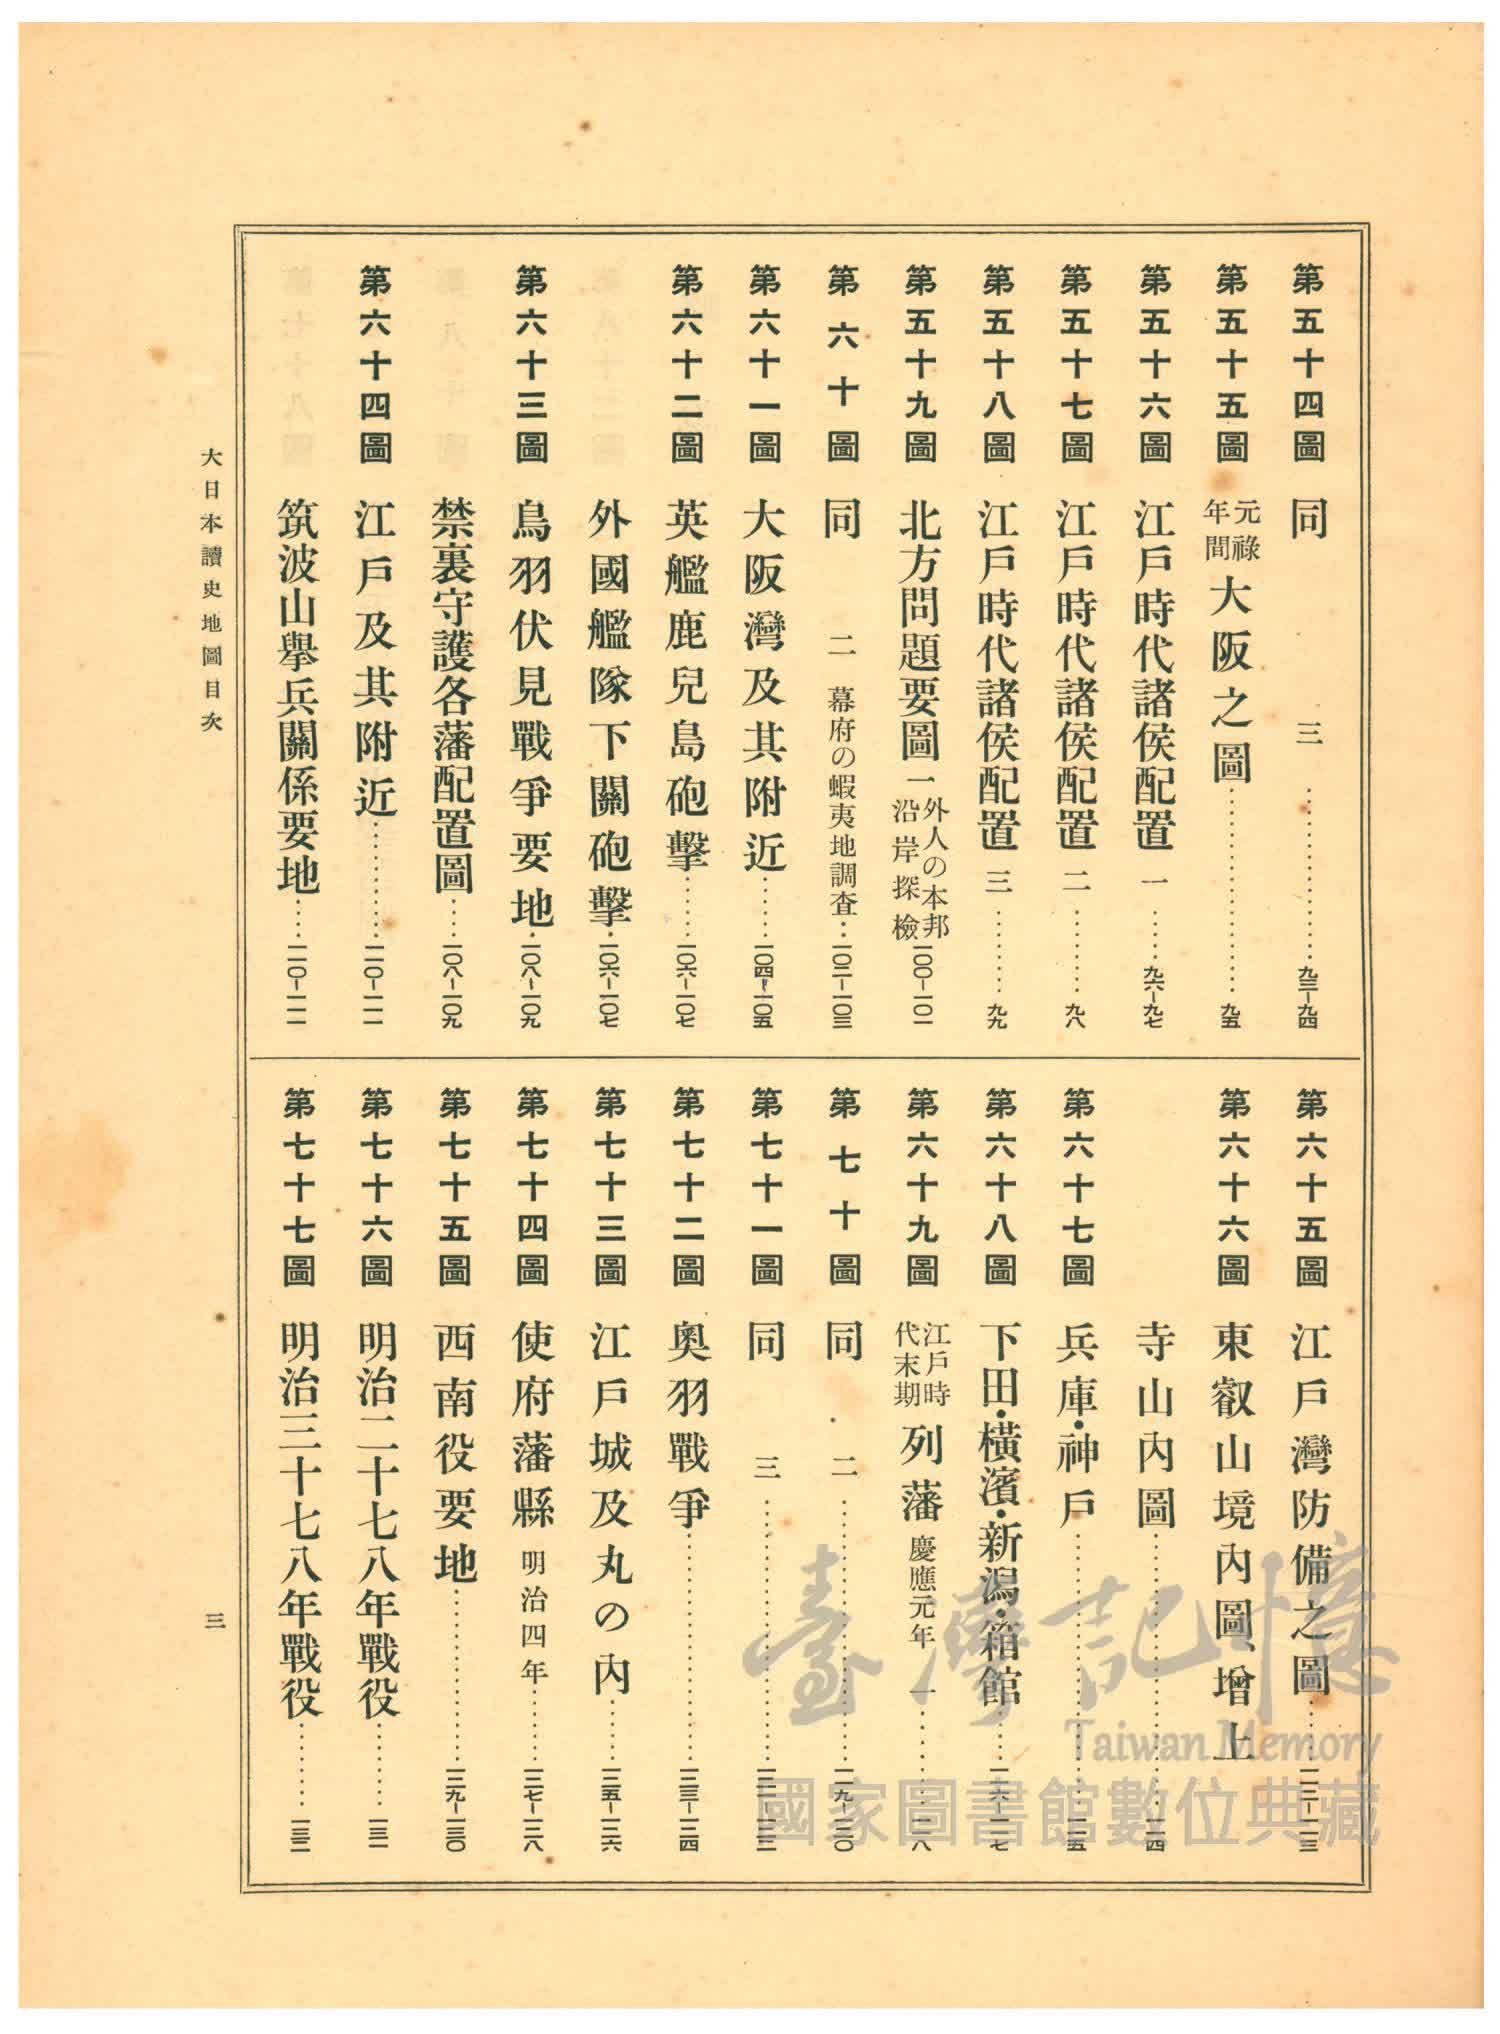 第五十四圖 同 三……………九三-九四
第五十五圖 元祿年間 大阪之圖……………九五
第五十六圖 江戶時代諸侯配置 一……九六-九七
第五十七圖 江戶時代諸侯配置 二………九八
第五十八圖 江戶時代諸侯配置 三………九九
第五十九圖 北方問題要圖 一 外人の本邦沿岸探檢 一〇〇-一〇一
第六十圖 同 二 幕府の蝦夷地調査…一〇二-一〇三
第六十一圖 大阪灣及其附近……一〇四-一〇五
第六十二圖 英艦鹿兒島砲擊……一〇六-一〇七
外國艦隊下關砲擊…一〇六-一〇七
第六十三圖 鳥羽伏見戰爭要地…一〇八-一〇九
禁裏守護各藩配置圖…一〇八-一〇九
第六十四圖 江戶及其附近…………一一〇-一一一
筑波山擧兵關係要地……一一〇-一一一
第六十五圖 江戶灣防備之圖……一一二-一一三
第六十六圖 東叡山境內圖、增上
寺山內圖……………一一四
第六十七圖 兵庫・神戶……………一一五
第六十八圖 下田・橫濱・新潟・箱館……一一六-一一七
第六十九圖 江戶時代末期 列藩 慶應元年 一……一一八
第七十圖 同 二……………一一九-一二〇
第七十一圖 同 三……………一二一-一二二
第七十二圖 奧羽戰爭……………一二三-一二四
第七十三圖 江戶城及丸の內……一二五-一二六
第七十四圖 使府藩縣 明治四年……一二七-一二八
第七十五圖 西南役要地……………一二九-一三〇
第七十六圖 明治二十七八年戰役………一三一
第七十七圖 明治三十七八年戰役………一三二
大日本讀史地圖目次
三
臺灣記憶
Taiwan Memory
國家圖書館數位典藏